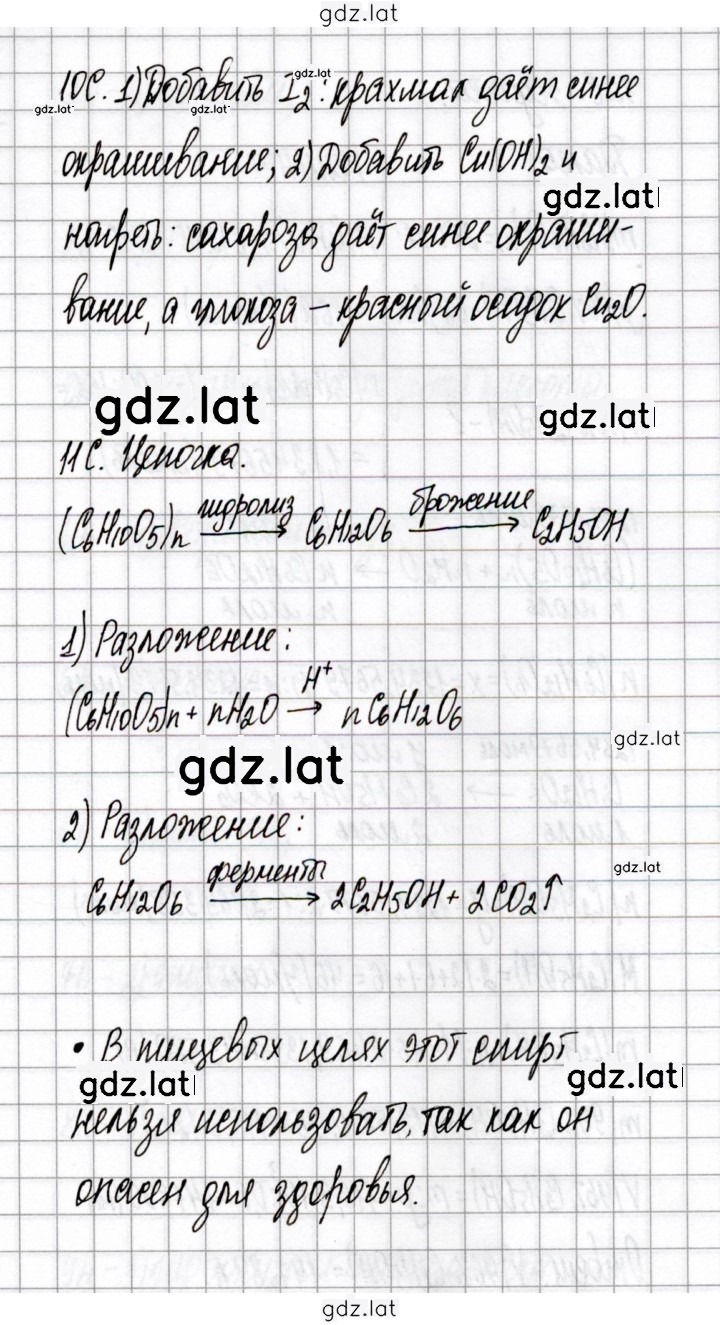 gdz.lat
10С. 1) Добавить I2: крахмал даёт синее
gdz.lat gdz.lat gdz.lat
окрашивание; 2) Добавить Cu(OH)2 и
gdz.lat
нагреть: сахароза даёт синее окраши-
вание, а глюкоза – красный осадок Cu2O.
gdz.lat gdz.lat
11С. Цепочка.
(C6H10O5)n гидролиз → C6H12O6 брожение → C2H5OH
1) Разложение:
(C6H10O5)n + nH2O H+ → nC6H12O6
gdz.lat
gdz.lat
2) Разложение:
gdz.lat
C6H12O6 ферменты → 2C2H5OH + 2CO2↑
• В пищевых целях этот спирт
gdz.lat gdz.lat
нельзя использовать, так как он
опасен для здоровья.
gdz.lat